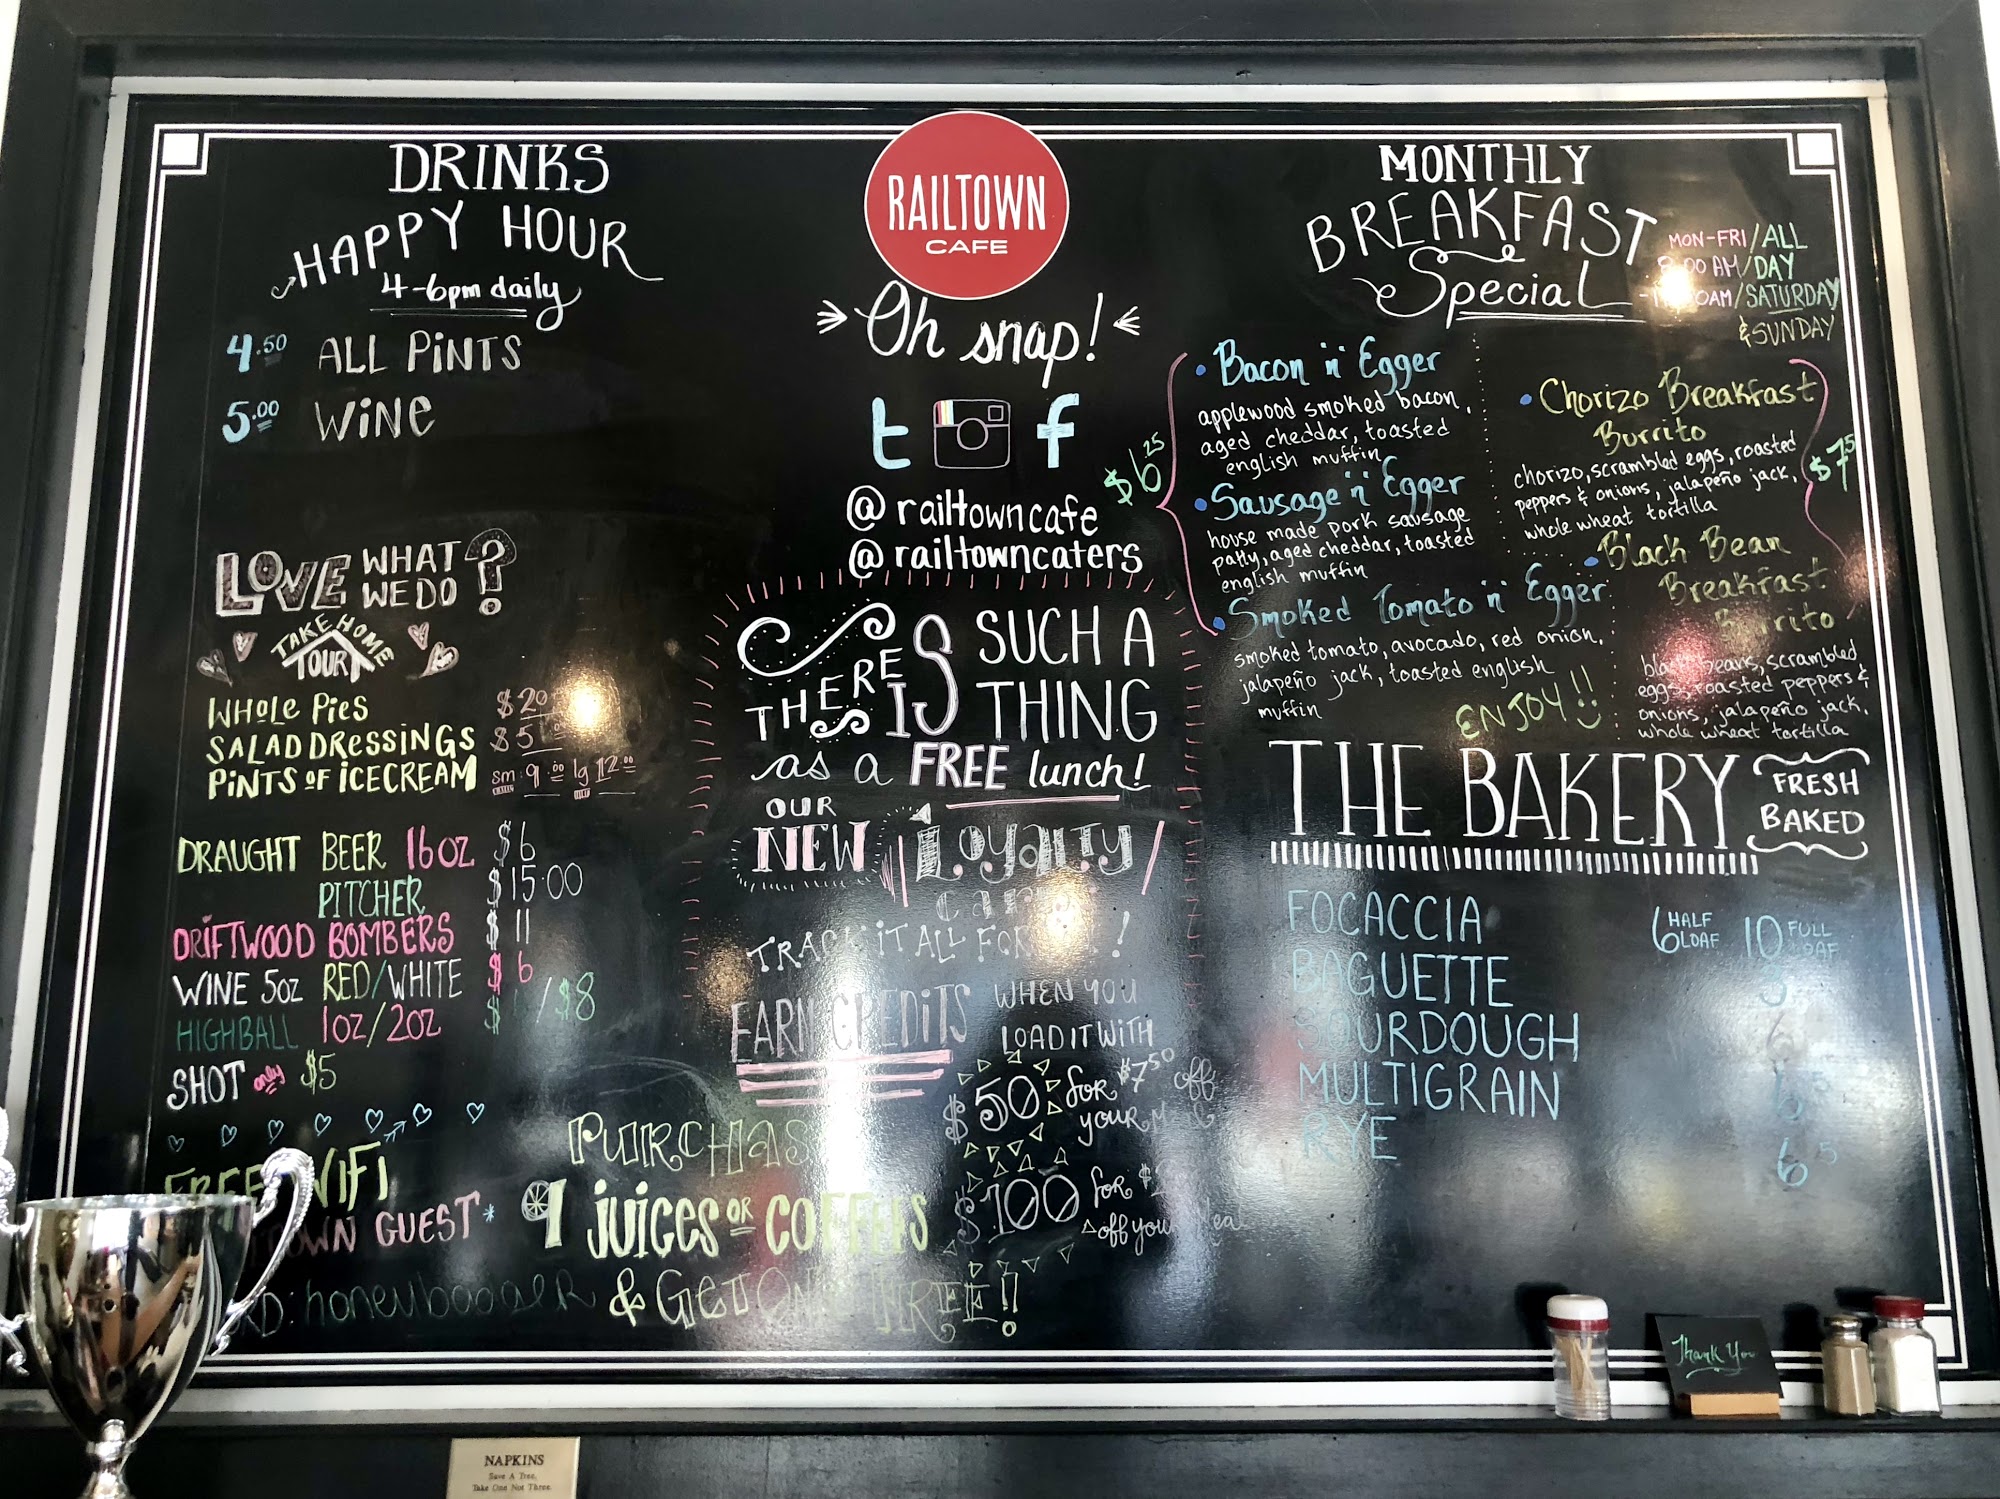 DRINKS
HAPPY HOUR
4-6pm daily
4.50 ALL PINTS
5.00 WINE
LOVE WHAT WE DO?
TAKE HOME
TOUR
WHOLE PIES $20
SALAD DRESSINGS $5
PINTS OF ICECREAM sm 9.00 lg 12.00
DRAUGHT BEER 16OZ $6
PITCHER $15.00
DRIFTWOOD BOMBERS $11
WINE 5OZ RED/WHITE $6
HIGHBALL 1OZ/2OZ /$8
SHOT only $5
FREE WIFI
GUEST*
RAILTOWN
CAFE
Oh snap!
t f
@railtowncafe
@railtowncaters
THERE IS SUCH A THING
as a FREE lunch!
OUR
NEW Loyalty
card
TRACK IT ALL FOR !
EARN CREDITS WHEN YOU
LOAD IT WITH
$50 for $7.50 off
your Meal
$100 for
off your Meal
PURCHASE
9 JUICES OR COFFEES
& GET ONE FREE!!
MONTHLY
BREAKFAST
Special
MON-FRI/ALL
AM/DAY
AM/SATURDAY
& SUNDAY
$6.25
• Bacon 'n' Egger
applewood smoked bacon,
aged cheddar, toasted
english muffin
• Sausage 'n' Egger
house made pork sausage
patty, aged cheddar, toasted
english muffin
• Smoked Tomato 'n' Egger
smoked tomato, avocado, red onion,
jalapeño jack, toasted english
muffin
• Chorizo Breakfast
Burrito
chorizo, scrambled eggs, roasted
peppers & onions, jalapeño jack,
whole wheat tortilla
$7.5
• Black Bean
Breakfast
Burrito
black beans, scrambled
eggs, roasted peppers &
onions, jalapeño jack,
whole wheat tortilla
ENJOY!!
THE BAKERY
FRESH
BAKED
FOCACCIA 6 HALF LOAF 10 FULL LOAF
BAGUETTE 3
SOURDOUGH 6
MULTIGRAIN
RYE 6.5
Thank You
NAPKINS
Save A Tree,
Take One Not Three.